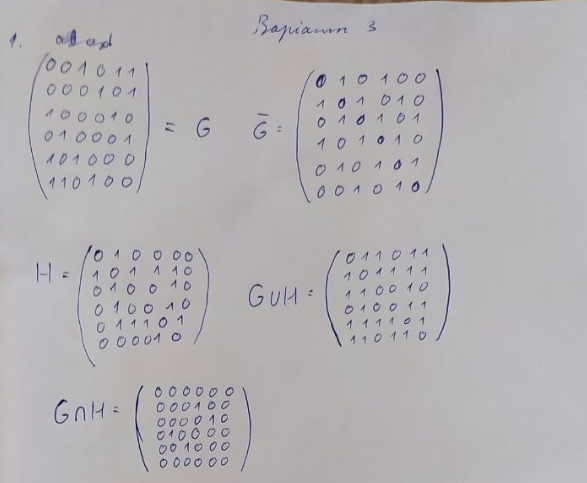 Варіант 3
1.
0 0 1 0 1 1
0 0 0 1 0 1
1 0 0 0 1 0
0 1 0 0 0 1
1 0 1 0 0 0
1 1 0 1 0 0
= G
G̅ =
0 1 0 1 0 0
1 0 1 0 1 0
0 1 0 1 0 1
1 0 1 0 1 0
0 1 0 1 0 1
0 0 1 0 1 0
H =
0 1 0 0 0 0
1 0 1 1 1 0
0 1 0 0 1 0
0 1 0 0 1 0
0 1 1 1 0 1
0 0 0 0 1 0
G∪H =
0 1 1 0 1 1
1 0 1 1 1 1
1 1 0 0 1 0
0 1 0 0 1 1
1 1 1 1 0 1
1 1 0 1 1 0
G∩H =
0 0 0 0 0 0
0 0 0 1 0 0
0 0 0 0 1 0
0 1 0 0 0 0
0 0 1 0 0 0
0 0 0 0 0 0